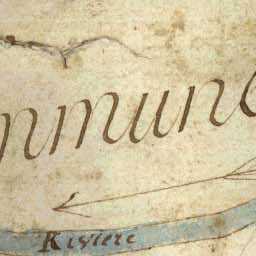 nmune
Riviere